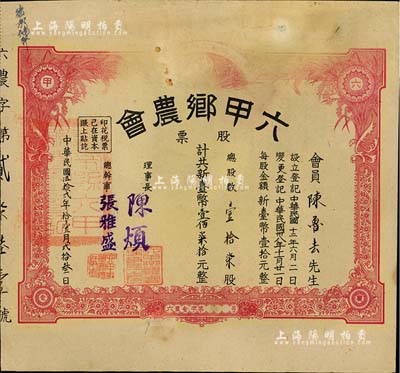 上海陽明拍賣
SHANGHAI YANGMING AUCTION
六
甲
六甲鄉農會
股票
會員 陳 去 先生
設立登記 中華民國十三年六月二日
變更登記 中華民國卅八年十月廿一日
每股金額 新臺幣壹拾元整
總股數 壹拾柒股
計共新臺幣壹佰柒拾元整
理事長 陳
總幹事 張雅盛
印花稅票
已在資本
賬上貼訖
中華民國伍拾貳年拾壹月貳拾叁日
六農字第貳 號
上海陽明拍賣
上海陽明拍賣